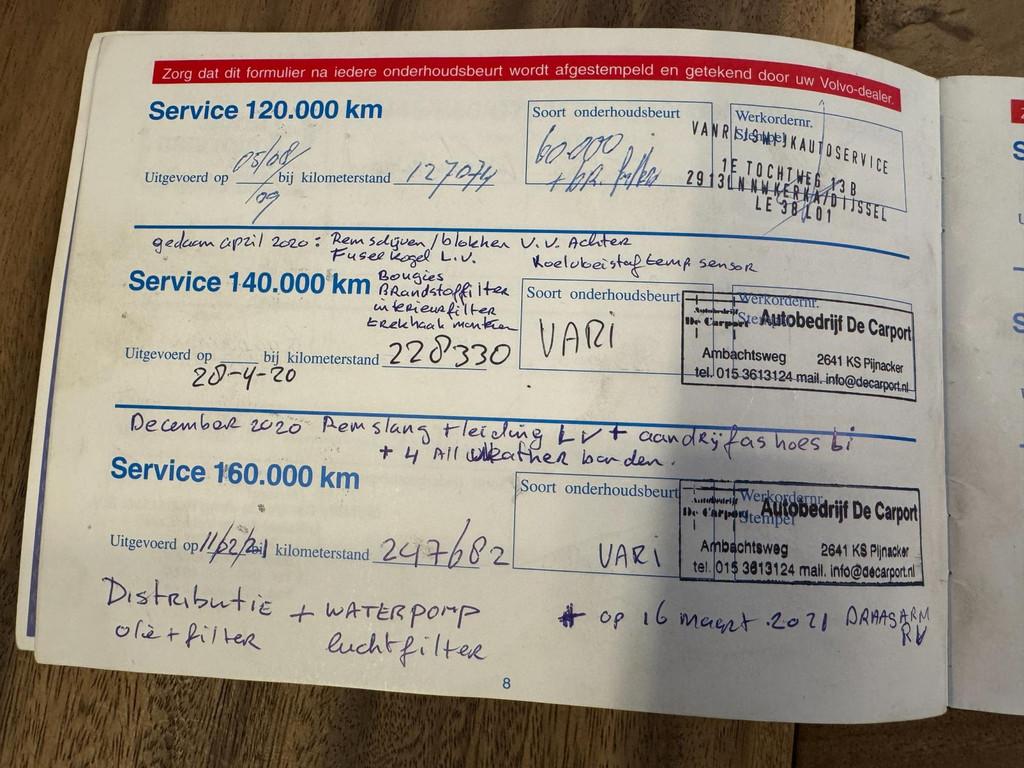 Zorg dat dit formulier na iedere onderhoudsbeurt wordt afgestempeld en getekend door uw Volvo-dealer.
Service 120.000 km
Soort onderhoudsbeurt
Werkordernr.
Stempel
60.000
+ br. filter
VANRIJSWIJKAUTOSERVICE
1E TOCHTWEG 13B
2913LN NWKERKA/DIJSSEL
Uitgevoerd op 05/08/09 bij kilometerstand 127074
gedaan april 2020: Remschijven/blokken V.V. Achter
Fusee kogel L.V. Koelvloeistof temp sensor
Service 140.000 km
Bougies
Brandstoffilter
interieurfilter
trekhaak monteren
Soort onderhoudsbeurt
Werkordernr.
Stempel
VARI
Autobedrijf De Carport
Autobedrijf De Carport
Ambachtsweg 2641 KS Pijnacker
tel. 015 3613124 mail. info@decarport.nl
Uitgevoerd op bij kilometerstand 228330
28-4-20
December 2020 Remslang + leiding LV + aandrijfas hoes bi
+ 4 All weather banden.
Service 160.000 km
Soort onderhoudsbeurt
Werkordernr.
Stempel
VARI
Autobedrijf De Carport
Autobedrijf De Carport
Ambachtsweg 2641 KS Pijnacker
tel. 015 3613124 mail. info@decarport.nl
Uitgevoerd op 11/02/21 bij kilometerstand 247682
Distributie + WATERPOMP
olie + filter luchtfilter
+ op 16 maart 2021 DRAAGARM
RV
8